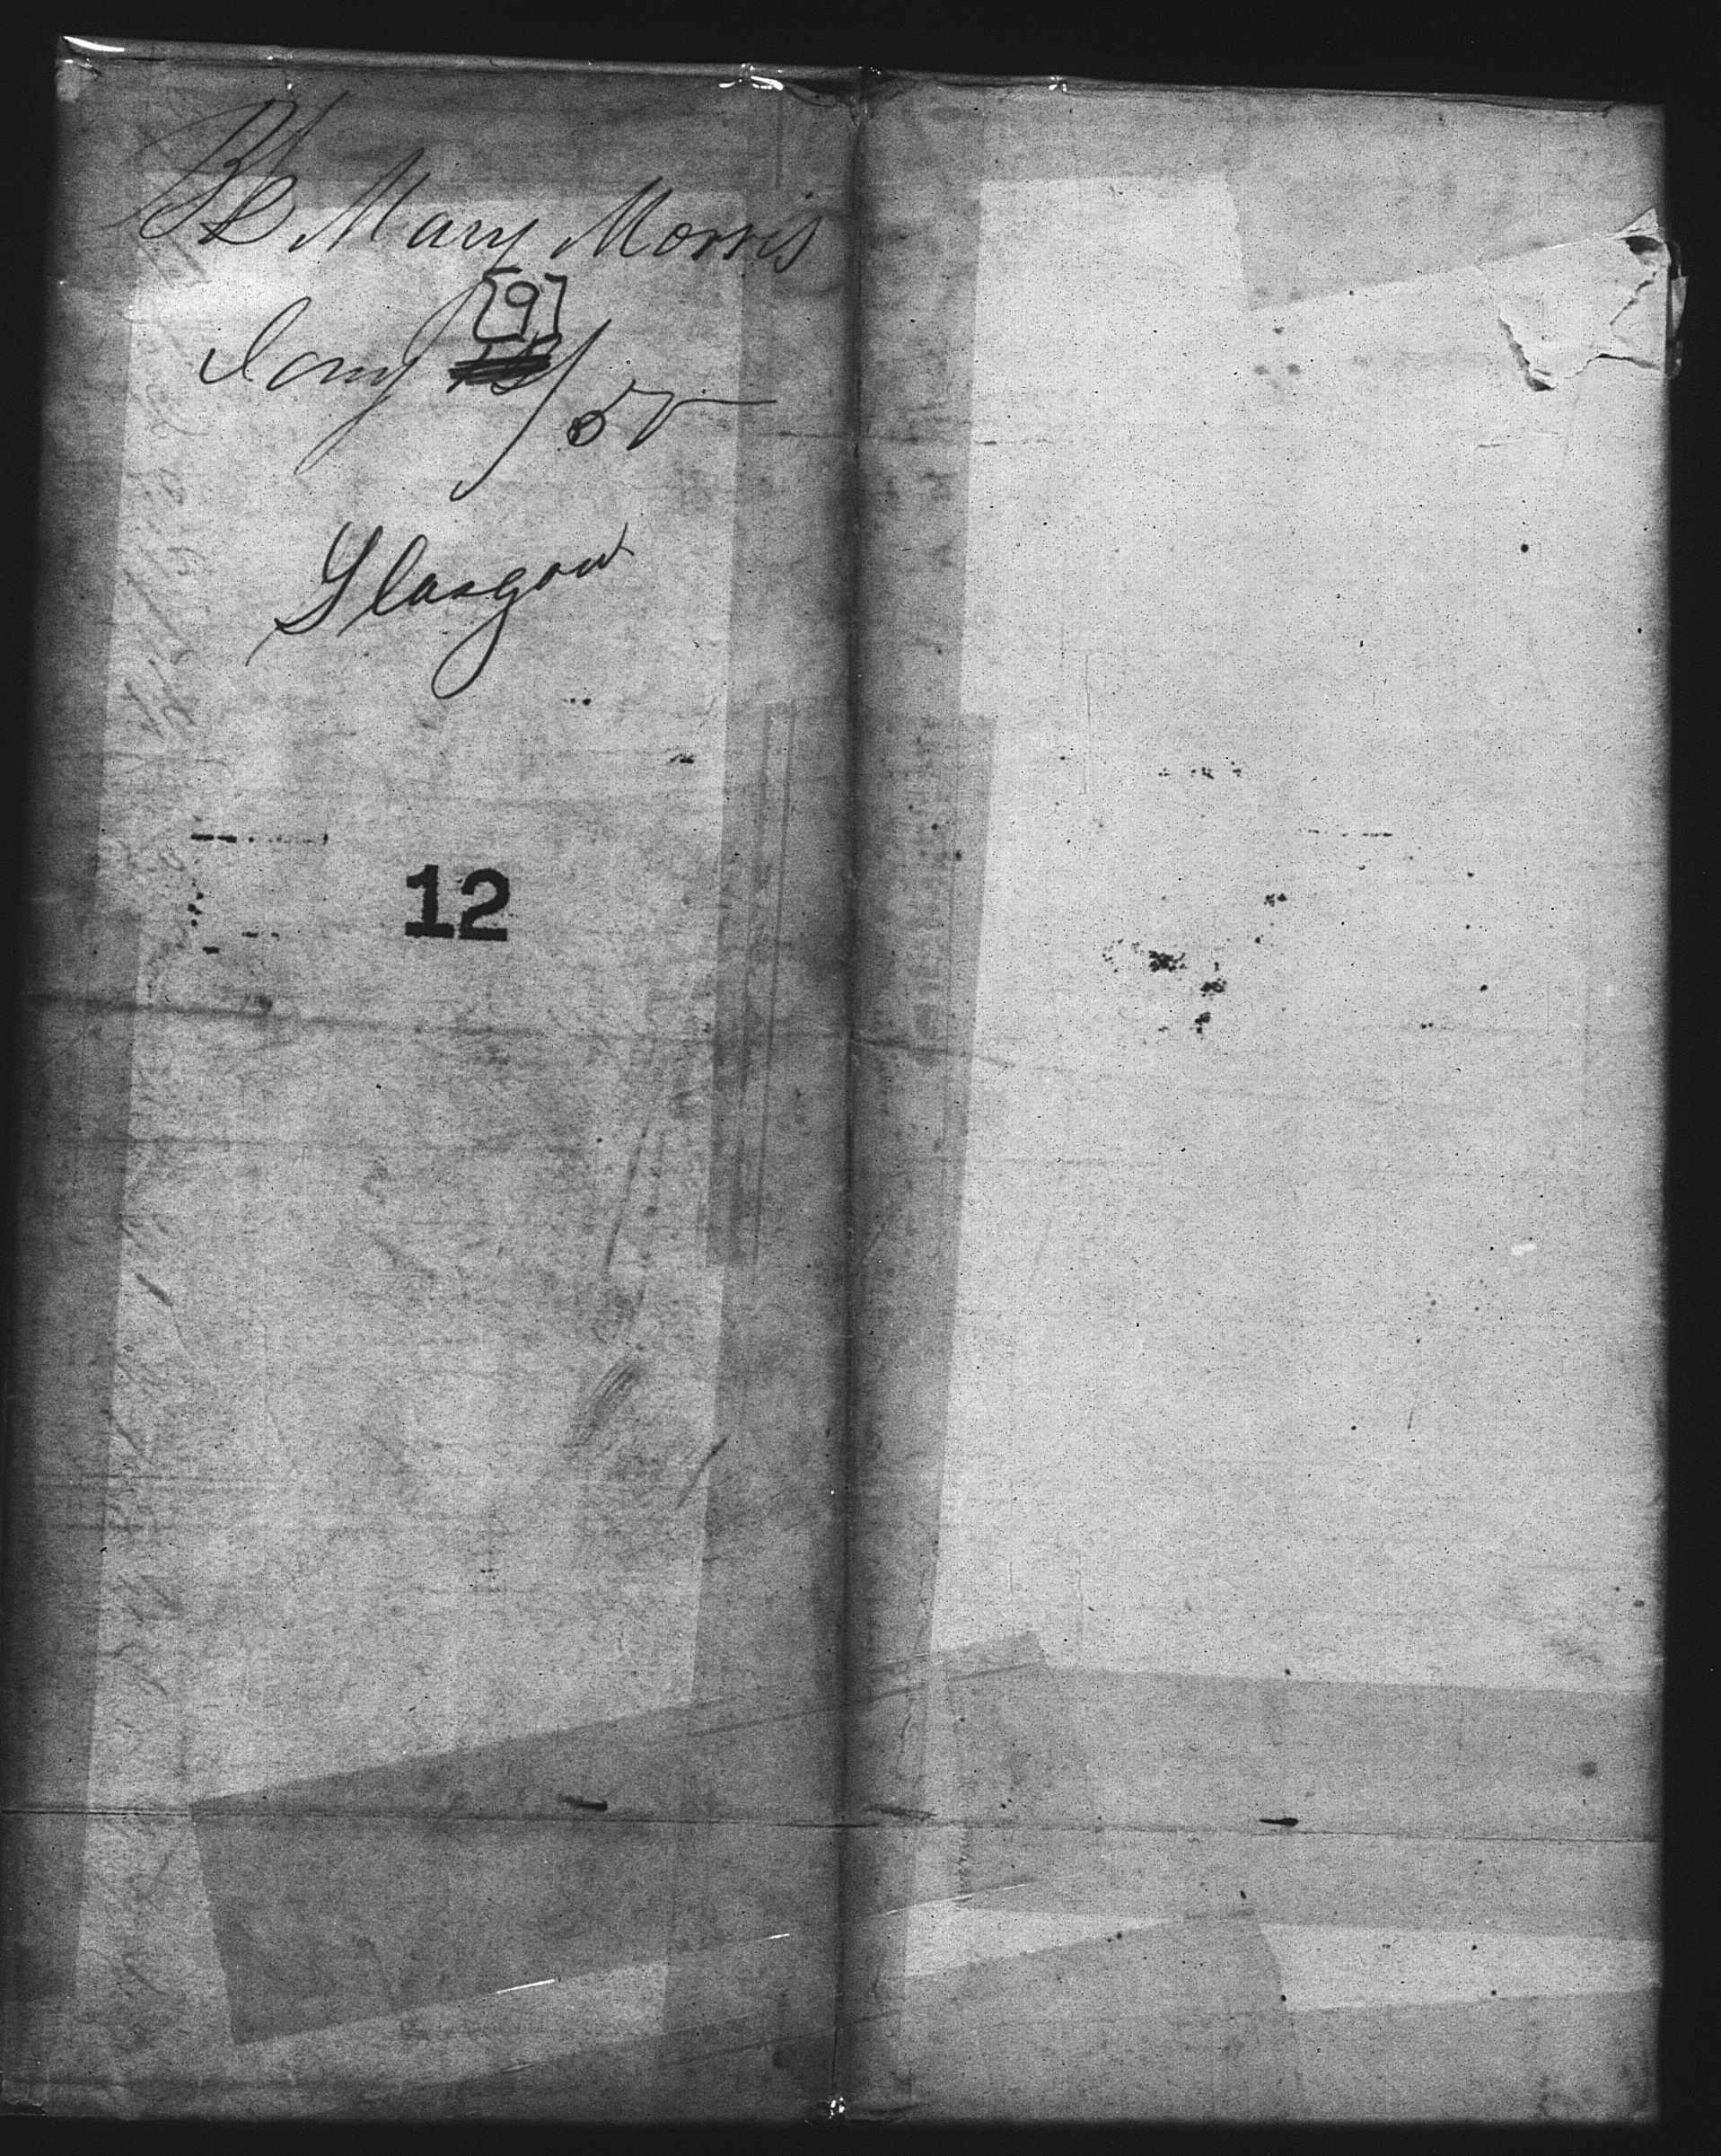 Bk Mary Morris
Jany [9]
/55
Glasgow
12